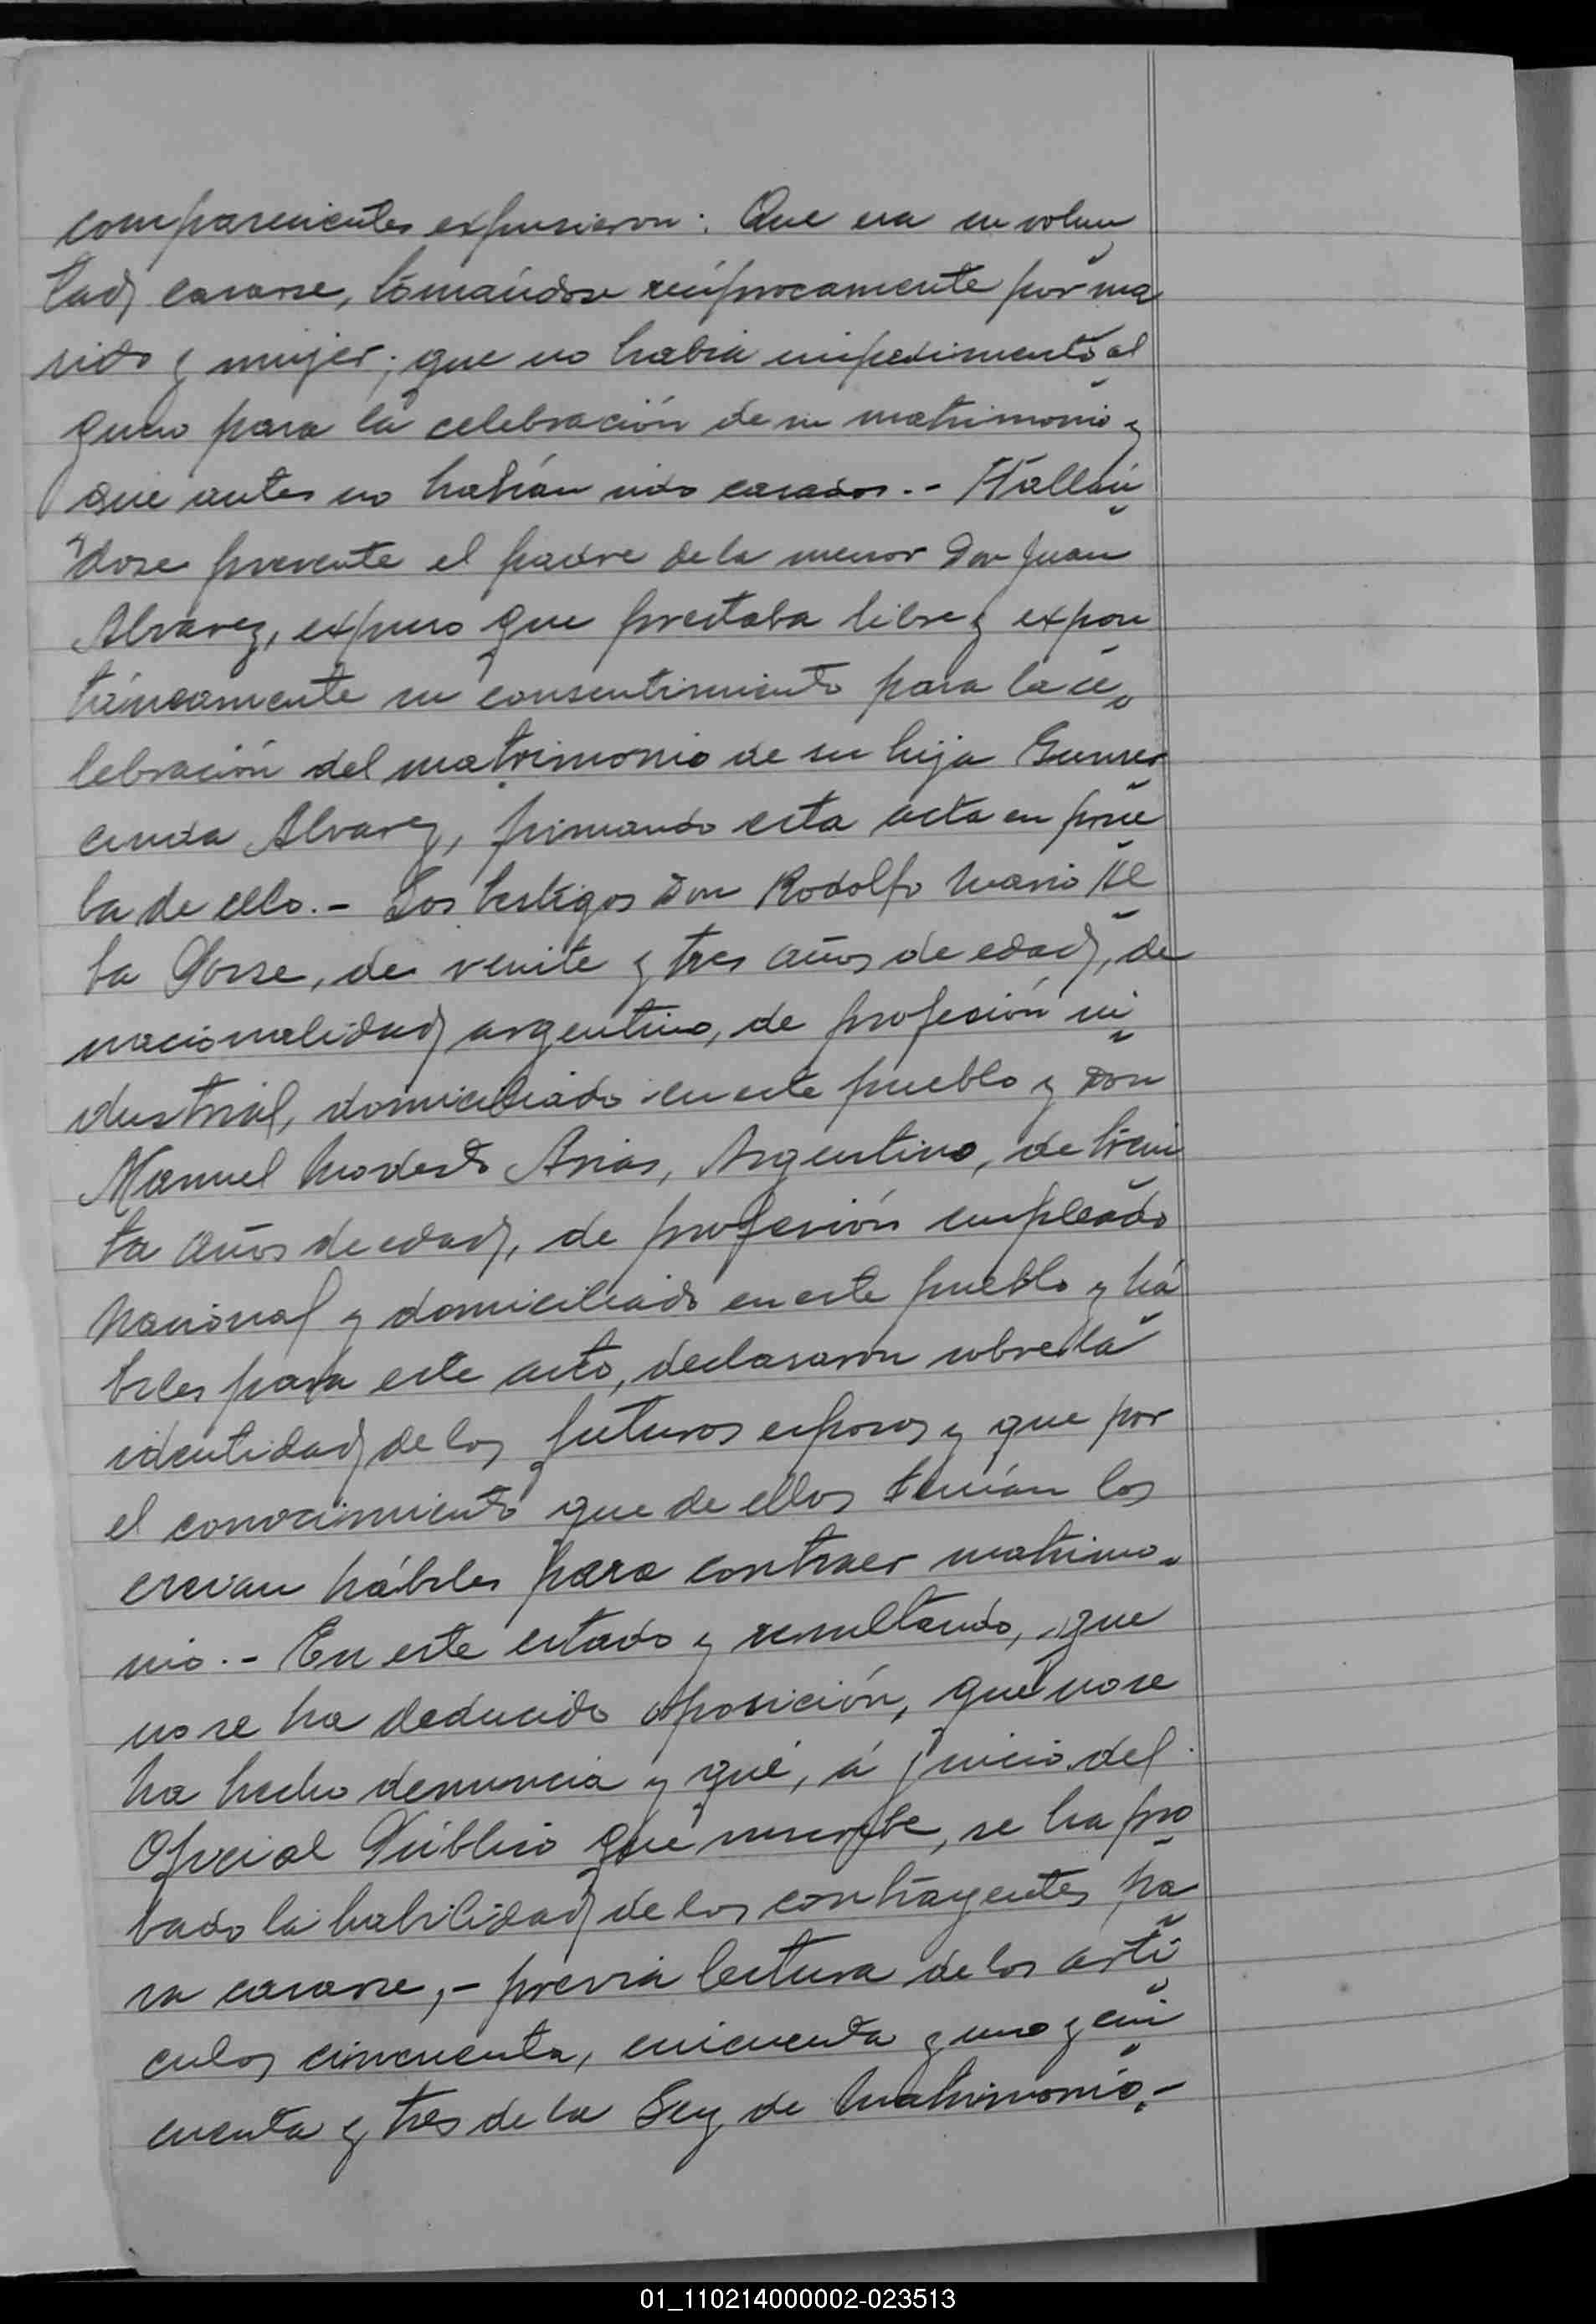 comparecientes expusieron: Que era su volun
tad casarse, tomándose recíprocamente por ma
rido y mujer; que no había impedimento al
guno para la celebración de su matrimonio y
que antes no habían sido casados.- Hallán
dose presente el padre de la menor Don Juan
Alvarez, expuso que prestaba libre y expon
táneamente su consentimiento para la ce
lebración del matrimonio de su hija Gumer
cinda Alvarez, firmando esta acta en prue
ba de ello.- Los testigos Don Rodolfo Mario
de veinte y tres años de edad, de
nacionalidad argentino, de profesión in
dustrial, domiciliado en este pueblo y Don
Manuel Modesto Arias, Argentino, de trein
ta años de edad, de profesión empleado
Nacional y domiciliado en este pueblo y há
biles para este acto, declararon sobre la
identidad de los futuros esposos y que por
el conocimiento que de ellos tenían los
creían hábiles para contraer matrimo-
nio.- En este estado y resultando, que
no se ha deducido oposición, que no se
ha hecho denuncia y que, á juicio del
Oficial Público que suscribe, se ha pro
bado la habilidad de los contrayentes pa
ra casarse,- previa lectura de los artí
culos cincuenta, cincuenta y uno y cin
cuenta y tres de la Ley de Matrimonio.-
01_110214000002-023513